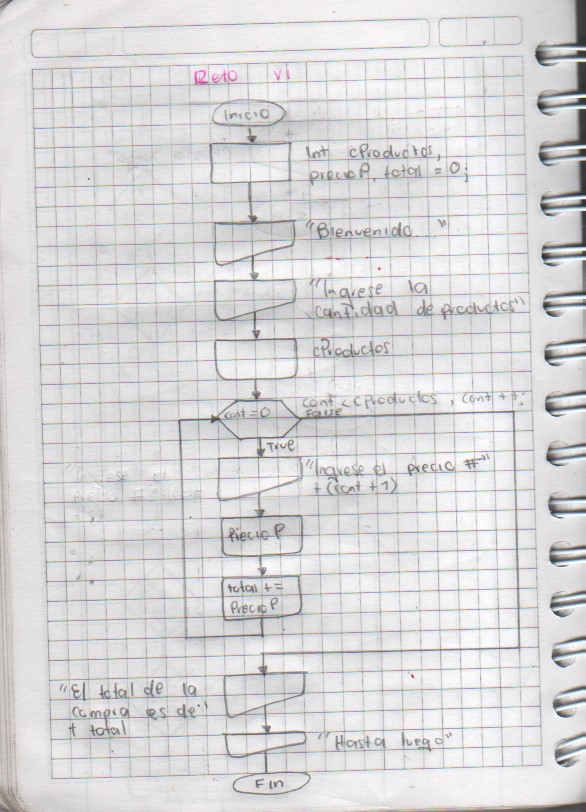 Reto V1
Inicio
Int cProductos,
precioP, total = 0;
"Bienvenido "
"Ingrese la
cantidad de productos"
cProductos
cont = 0
cont < cProductos, cont ++;
False
True
"Ingrese el precio #"
+ (cont + 1)
Precio P
total +=
Precio P
"El total de la
compra es de:"
+ total
"Hasta luego"
Fin